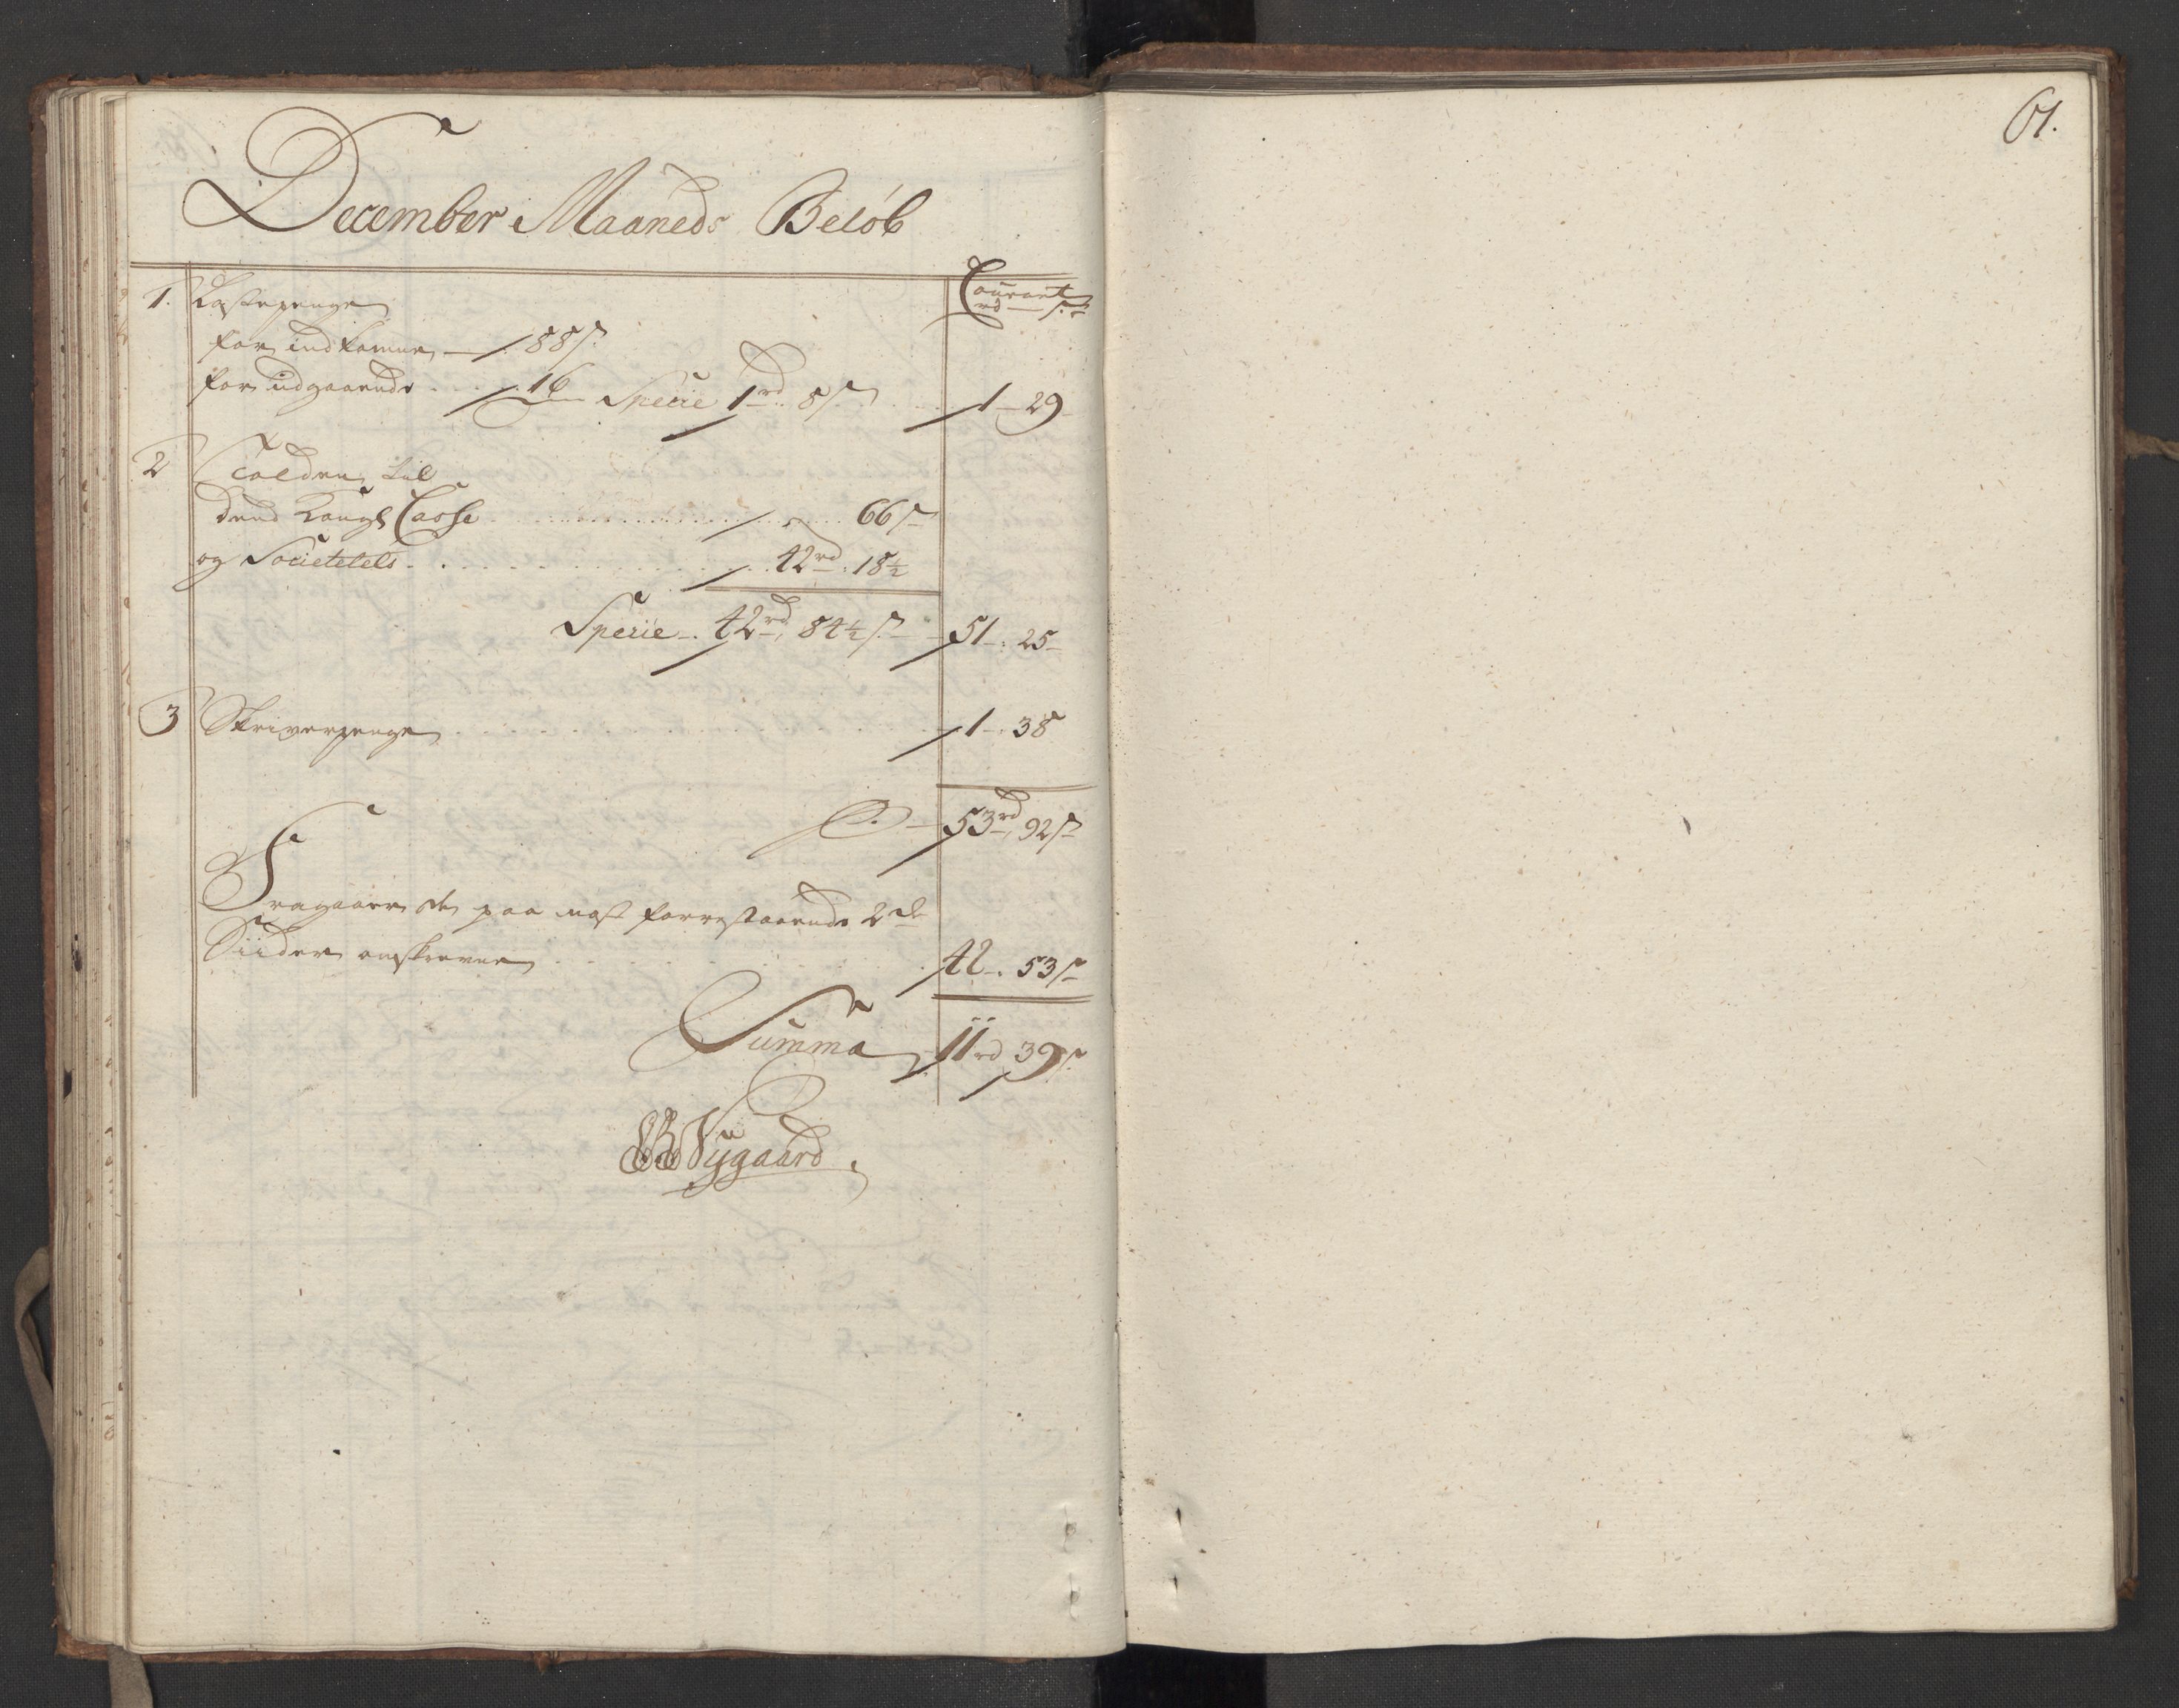 61.
December Maaneds Beløb
Courant
rd — s
1. Lastepenge
for indkomne — 88 s
for udgaaende . . . 16 Specie 1 rd 8 s . . 1 – 29
2 Tolden til
dend Kongl Casse . . . . . . 66 s
og Societetets . . . . . . 42 rd : 18½
Specie – 42 rd, 84½ s – 51 – : 25 –
3 Skriverpenge . . . . . . 1 – : 38
53 rd, 92 s
Fragaaer de paa næst forrestaaende 2de
Siider anskrevne . . . . . . 42 – . 53 s
Summa 11 rd 39 s
Nygaard.